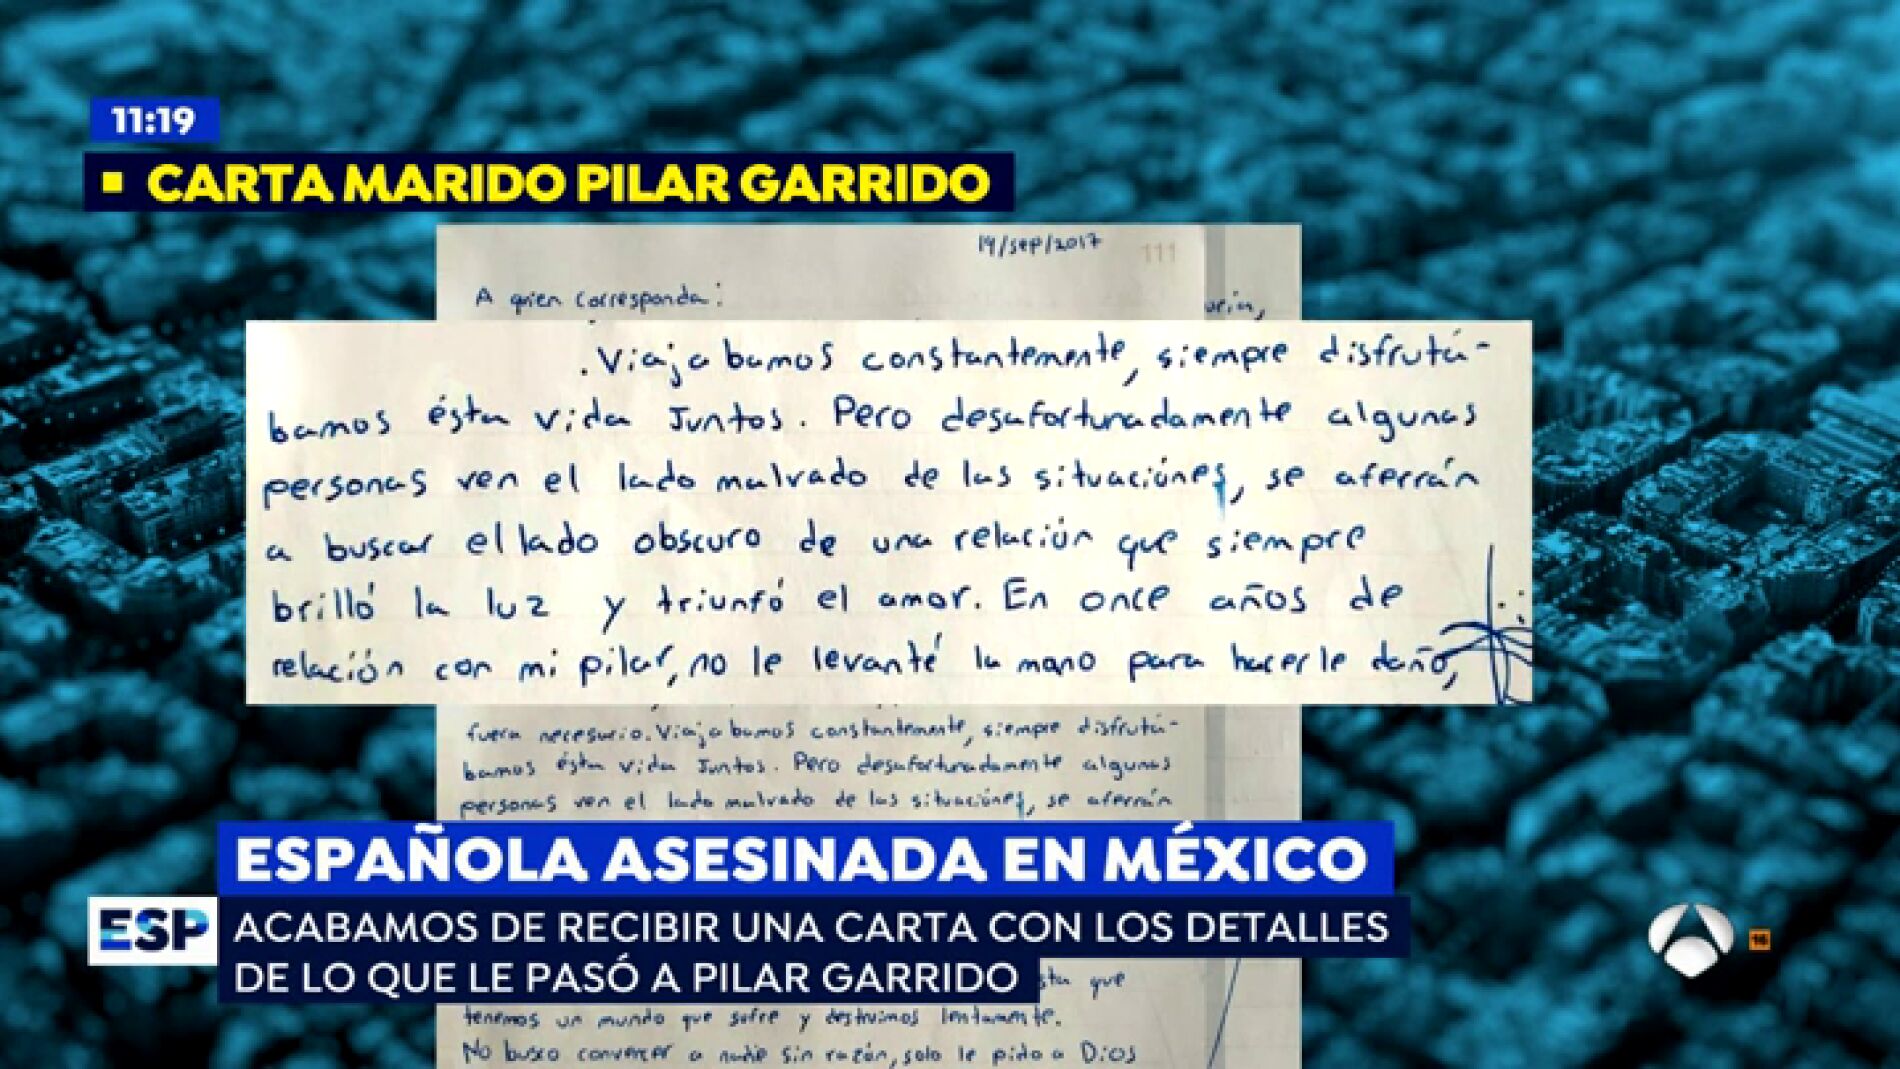 11:19
CARTA MARIDO PILAR GARRIDO
19/sep/2017
111
A quien corresponda:
.Viajabamos constantemente, siempre disfrutá-
bamos ésta vida Juntos. Pero desafortunadamente algunas
personas ven el lado malvado de las situaciónes, se aferrán
a buscar el lado obscuro de una relación que siempre
brilló la luz y triunfó el amor. En once años de
relación con mi pilar, no le levanté la mano para hacerle daño,
fuera necesario. Viajabamos constantemente, siempre disfrutá-
bamos ésta vida Juntos. Pero desafortunadamente algunas
personas ven el lado malvado de las situaciónes, se aferrán
ESPAÑOLA ASESINADA EN MÉXICO
ESP
ACABAMOS DE RECIBIR UNA CARTA CON LOS DETALLES
DE LO QUE LE PASÓ A PILAR GARRIDO
que
tenemos un mundo que sufre y destruimos lentamente.
No busco convencer a nadie sin razón, solo le pido a Dios
16